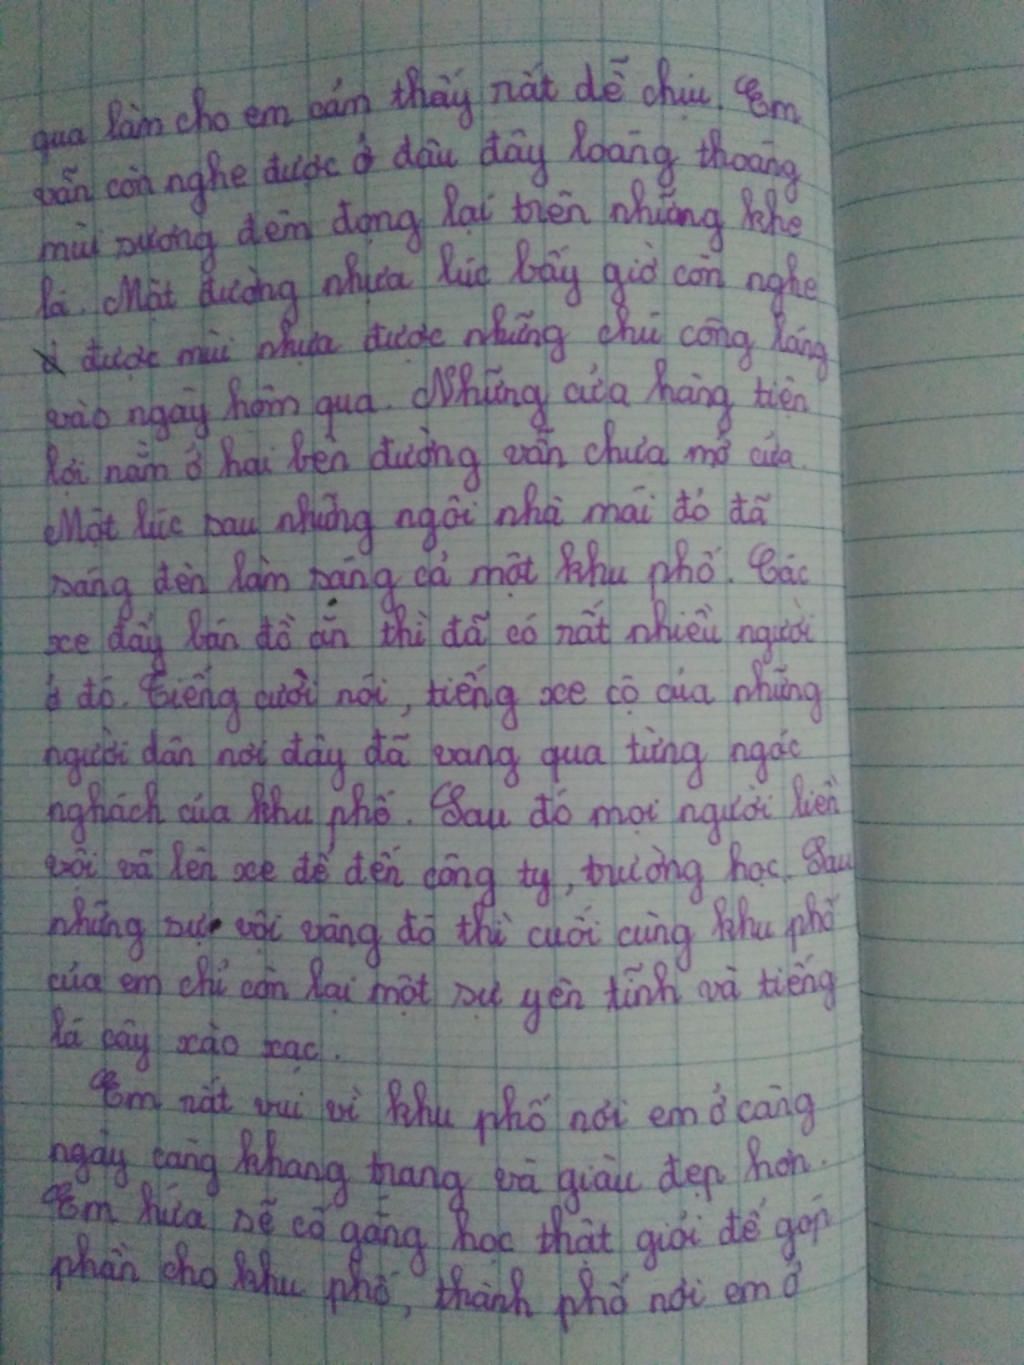 qua làm cho em cảm thấy rất dễ chịu. Em
vẫn còn nghe được ở đâu đây loãng thoãng
mùi sương đêm đọng lại trên những khe
lá. Mặt đường nhựa lúc bấy giờ còn nghe
được mùi nhựa được những chú công láng
vào ngày hôm qua. Những cửa hàng tiện
lợi nằm ở hai bên đường vẫn chưa mở cửa.
Một lúc sau những ngôi nhà mái đỏ đã
sáng đèn làm sáng cả một khu phố. Các
xe đẩy bán đồ ăn thì đã có rất nhiều người
ở đó. Tiếng cười nói, tiếng xe cộ của những
người dân nơi đây đã vang qua từng ngóc
nghách của khu phố. Sau đó mọi người liền
vội vã lên xe để đến công ty, trường học. Sau
những sự vội vàng đó thì cuối cùng khu phố
của em chỉ còn lại một sự yên tĩnh và tiếng
lá cây xào xạc.
Em rất vui vì khu phố nơi em ở càng
ngày càng khang trang và giàu đẹp hơn.
Em hứa sẽ cố gắng học thật giỏi để góp
phần cho khu phố, thành phố nơi em ở